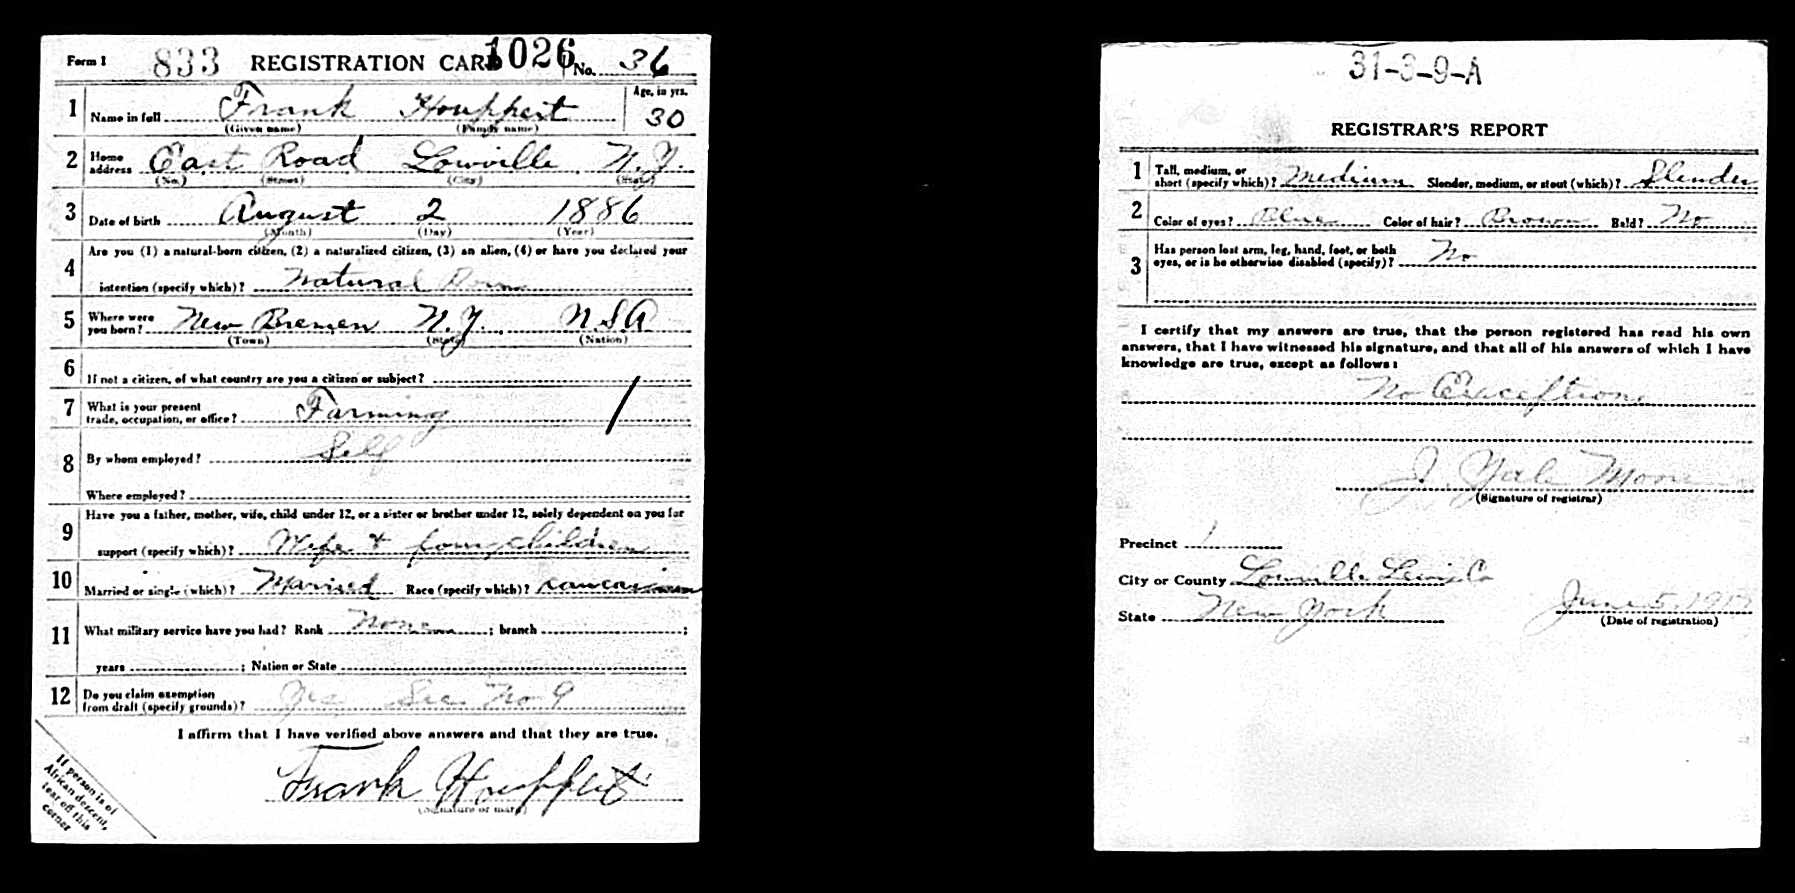 Form 1 833 REGISTRATION CARD 1026 No. 36
1 Name in full Frank Houppert Age, in yrs. 30
(Given name) (Family name)
2 Home address East Road Lowville N.Y.
(No.) (Street) (City) (State)
3 Date of birth August 2 1886
(Month) (Day) (Year)
Are you (1) a natural-born citizen, (2) a naturalized citizen, (3) an alien, (4) or have you declared your
4 intention (specify which)? Natural Born
5 Where were you born? New Bremen N.Y. USA
(Town) (State) (Nation)
6 If not a citizen, of what country are you a citizen or subject?
7 What is your present trade, occupation, or office? Farming /
8 By whom employed? Self
Where employed?
Have you a father, mother, wife, child under 12, or a sister or brother under 12, solely dependent on you for
9 support (specify which)? Wife & four children
10 Married or single (which)? Married Race (specify which)? Caucasian
11 What military service have you had? Rank None ; branch ;
years ; Nation or State
12 Do you claim exemption from draft (specify grounds)? Yes See No 9
I affirm that I have verified above answers and that they are true.
Frank Houppert
(Signature or mark)
If person is of
African descent,
tear off this
corner
31-3-9-A
REGISTRAR'S REPORT
1 Tall, medium, or short (specify which)? Medium Slender, medium, or stout (which)? Slender
2 Color of eyes? Blue Color of hair? Brown Bald? No
Has person lost arm, leg, hand, foot, or both
3 eyes, or is he otherwise disabled (specify)? No
I certify that my answers are true, that the person registered has read his own
answers, that I have witnessed his signature, and that all of his answers of which I have
knowledge are true, except as follows:
No Exceptions
J. Yale Moore
(Signature of registrar)
Precinct 1
City or County Lowville Lewis Co
State New York June 5, 1917
(Date of registration)